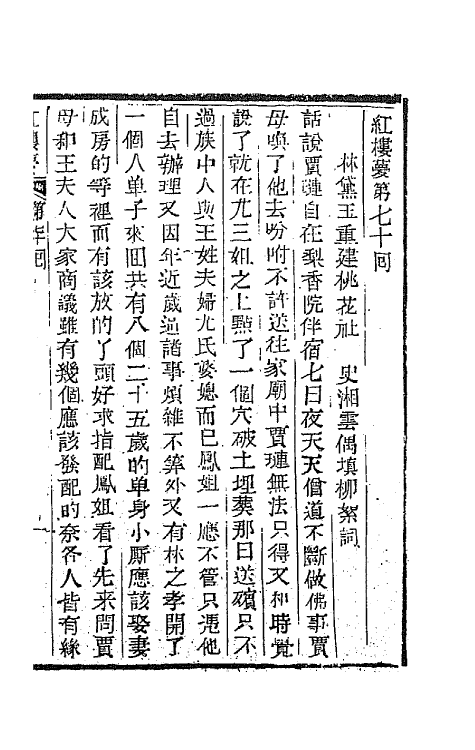 紅樓夢第七十回
林黛玉重建桃花社　史湘雲偶填柳絮詞
話說賈璉自在梨香院伴宿七日夜天天僧道不斷做佛事賈
母喚了他去吩咐不許送往家廟中賈璉無法只得又和時覺
說了就在尤三姐之上點了一個穴破土埋葬那日送殯只不
過族中人與王姓夫婦尤氏婆媳而已鳳姐一應不管只憑他
自去辦理又因年近歲逼諸事煩雜不算外又有林之孝開了
一個人單子來回共有八個二十五歲的单身小厮應該娶妻
成房的等裡面有該放的丫頭好求指配鳳姐看了先来問賈
母和王夫人大家商議雖有幾個應該發配的奈各人皆有緣
紅樓夢　第七十回